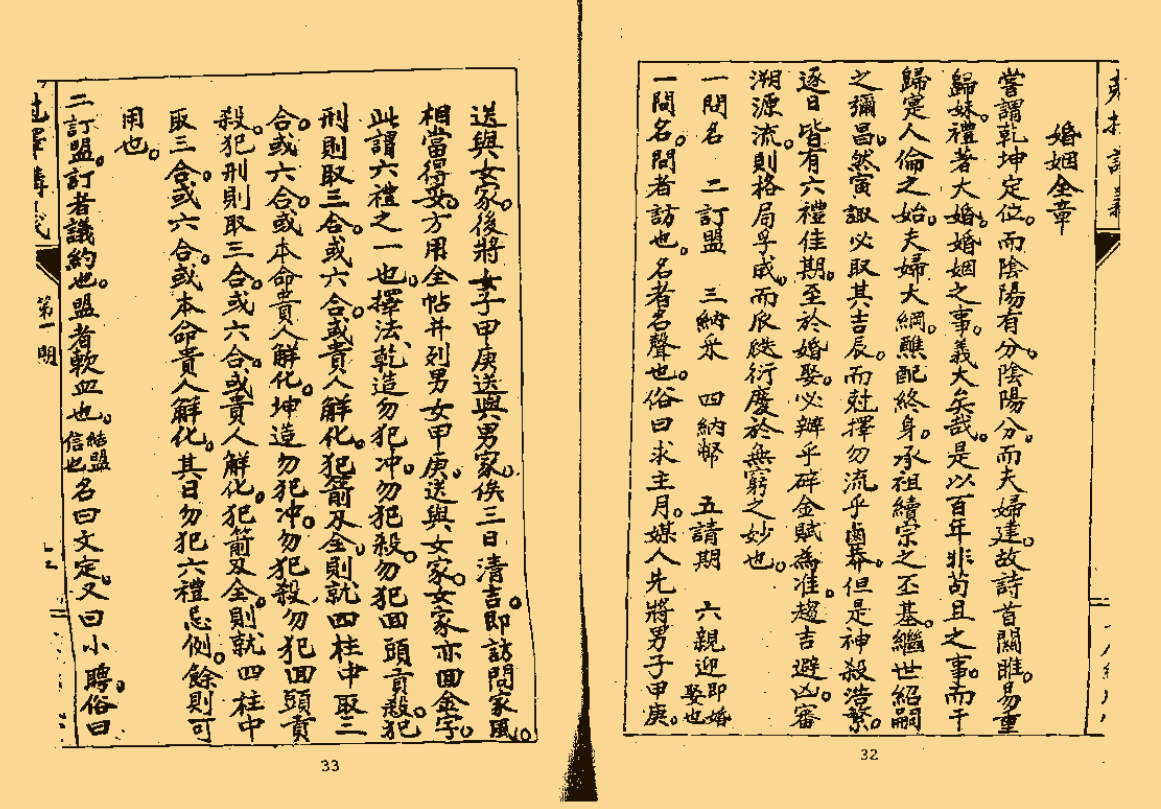 婚姻全章
嘗謂乾坤定位。而陰陽有分。陰陽分。而夫婦建。故詩首關雎。易重
歸妹。禮著大婚。婚姻之事。義大矣哉。是以百年非苟且之事。而于
歸寔人倫之始。夫婦大綱。醮配終身。承祖續宗之丕基。繼世紹嗣
之彌昌。然寅諏必取其吉辰。而尅擇勿流乎鹵莽。但是神殺浩繁。
逐日皆有六禮佳期。至於婚娶。必辨乎碎金賦為准。趨吉避凶。審
溯源流。則格局孚成。而衍慶於無窮之妙也。
一問名 二訂盟 三納采 四納幣 五請期 六親迎即婚娶也
一問名。問者訪也。名者名聲也。俗曰求主月。媒人先將男子甲庚。
32
送與女家。後將女子甲庚送與男家。俟三日清吉。即訪問家風。
相當得妥。方用全帖并列男女甲庚。送與女家。女家亦回金字。
此謂六禮之一也。擇法乾造勿犯冲。勿犯殺。勿犯回頭貢殺。犯
刑則取三合。或六合。或貴人解化。犯箭刃全。則就四柱中取三
合。或六合。或本命貴人解化。坤造勿犯冲。勿犯殺。勿犯回頭貢
殺。犯刑則取三合。或六合。或貴人解化。犯箭刃全。則就四柱中
取三合。或六合。或本命貴人解化。其日勿犯六禮忌例。餘則可
用也。
二訂盟。訂者議約也。盟者歃血也。結盟信也名曰文定。又曰小聘。俗曰
第一明
33